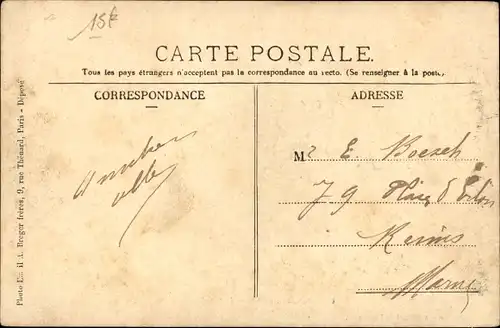 15f
CARTE POSTALE.
Tous les pays étrangers n'acceptent pas la correspondance au recto. (Se renseigner à la poste.)
CORRESPONDANCE
ADRESSE
Mr E. Boesch
79 Place d'Erlon
Reims
Marne
Photo-Em. il A. Breger frères, 9, rue Thénard, Paris - Déposé